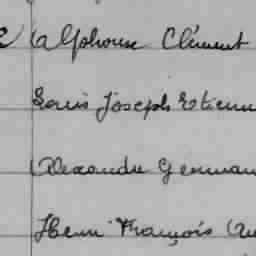 Alphonse Clément
Louis Joseph Etienne
Alexandre Germain
Henri François